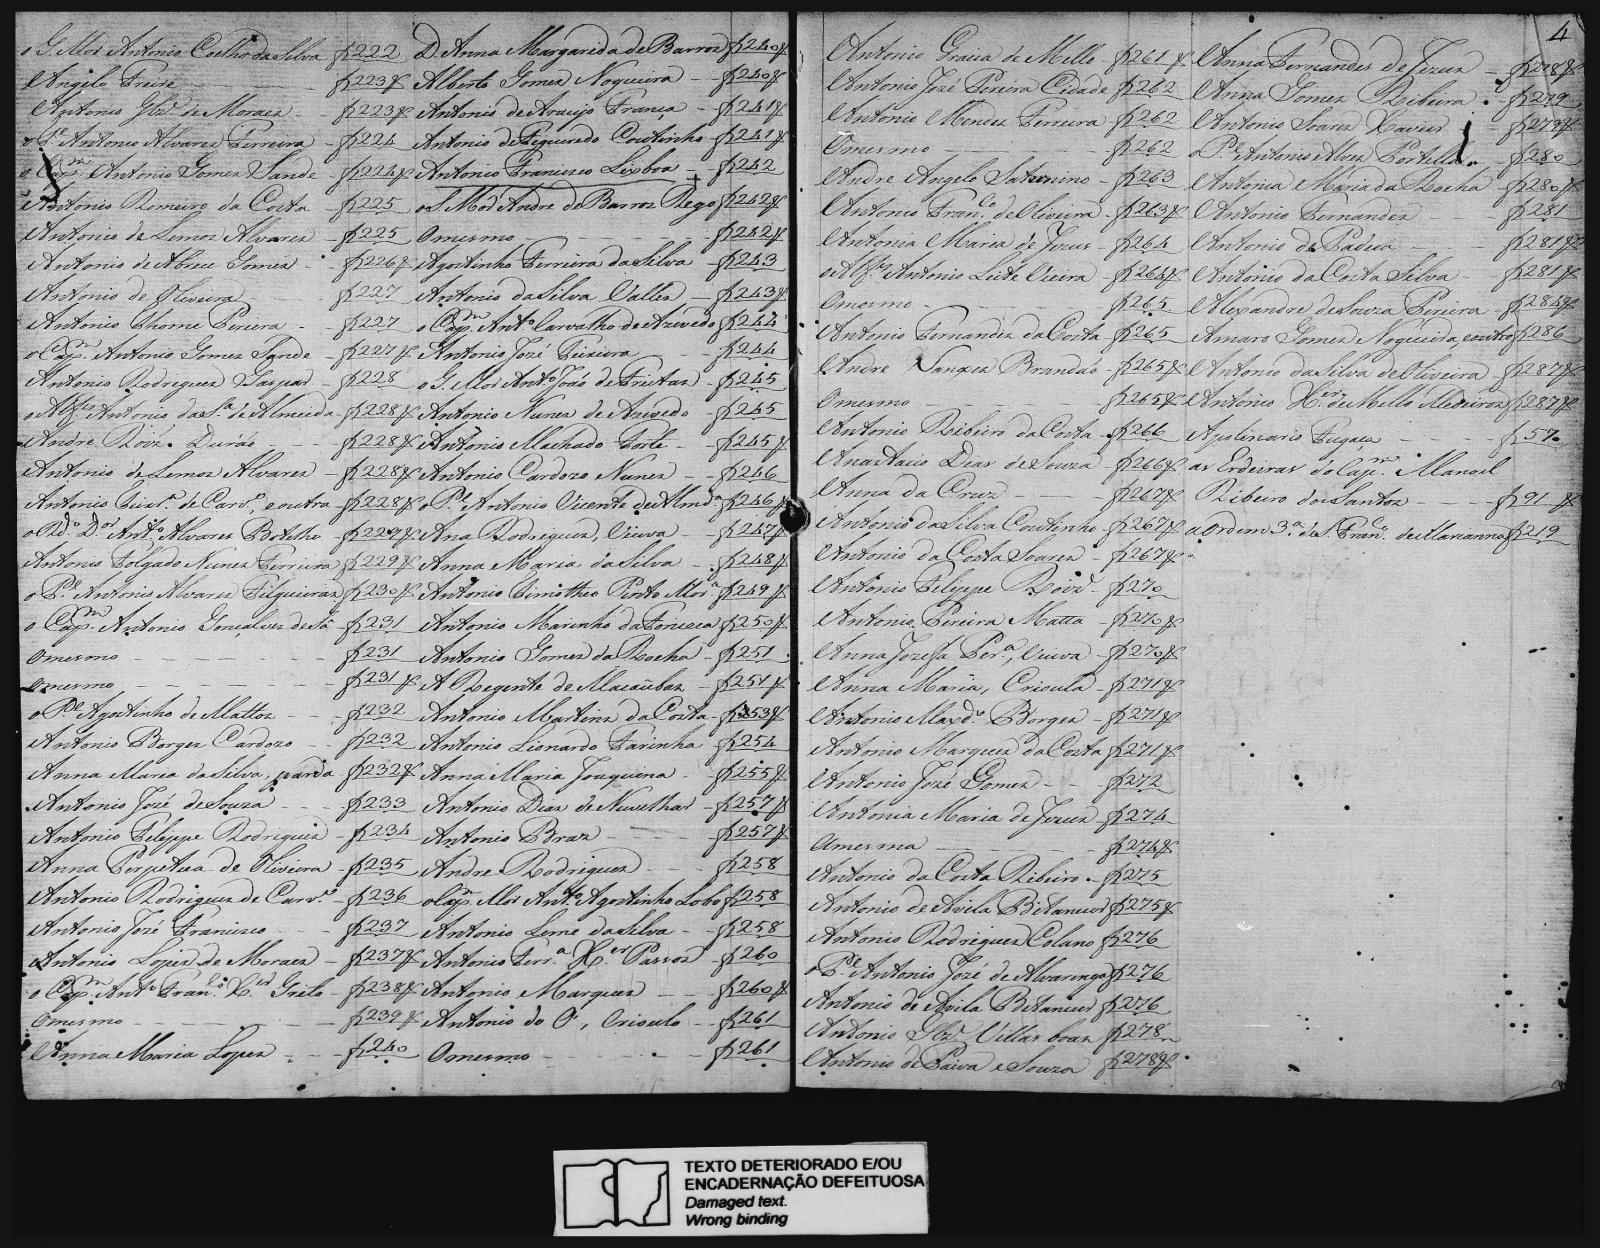 o G. Mór Antonio Coelho da Silva f222
Angelo Freire f223v
Antonio Glz. de Moraes f223v
o Pe. Antonio Alvares Ferreira f224
o Capm. Antonio Gomes Sande f224v
Antonio Romeiro da Costa f225
Antonio de Lemos Alvares f225
Antonio de Abreu Gomes f226v
Antonio de Oliveira f227
Antonio Thome Pereira f227
o Capm. Antonio Gomes Sande f227v
Antonio Rodrigues Gaspar f228
o Alfes. Antonio da Sa. de Almeida f228v
Andre Roiz. Durão f228v
Antonio de Lemos Alvares f228v
Antonio de Carvo. e outra f228v
o Rdo. Dor. Anto. Alvares Botelho f229v
Antonio Folgado Nunes Ferreira f229v
o Pe. Antonio Alvares Filgueiras f230v
o Capm. Antonio Gonçalves de Sá f231
Omesmo f231
Omesmo f231v
o Pe. Agostinho de Mattos f232
Antonio Borges Cardozo f232
Anna Maria da Silva, parda f232v
Antonio José de Souza f233
Antonio Felyppe Rodrigues f234
Anna Perpetua de Oliveira f235
Antonio Rodrigues de Carvo. f236
Antonio José Francisco f237
Antonio Lopes de Moraes f237v
o Capm. Anto. Franco. Xer. Grilo f238v
Omesmo f239v
Anna Maria Lopes f240
D. Anna Margarida de Barros f240v
Alberto Gomes Nogueira f240v
Antonio de Araujo França f241v
Antonio de Figueredo Coutinho f241v
Antonio Francisco Lisboa f242
o S. Mór Andre de Barros Rego f242v
Omesmo f242v
Agostinho Ferreira da Silva f243
Antonio da Silva Valles f243v
o Capm. Anto. Carvalho de Azevedo f244
Antonio José Teixeira f244
o G. Mór Anto. João de Freitas f245
Antonio Nunes de Azevedo f245
Antonio Machado f245v
Antonio Cardozo Nunes f246
o Pe. Antonio Vicente de Almda. f246v
Ana Rodrigues, Viuva f247v
Anna Maria da Silva f248v
Antonio Timotheo Pinto Mora. f249v
Antonio Marinho da Fonseca f250v
Antonio Gomes da Rocha f251
A Regente de Macaübas f251v
Antonio Martins da Costa f253v
Antonio Lionardo Farinha f254
Anna Maria Joaquina f255v
Antonio Dias de f257v
Antonio Braz f257v
Andre Rodrigues f258
o Capm. Mór Anto. Agostinho Lobo f258
Antonio Leme da Silva f258
Antonio Ferra. Xer. Passos f260
Antonio Marques f260v
Antonio do Ó, Crioulo f261
Omesmo f261
4
Antonio Gracia de Mello f261v
Antonio José Pereira Cidade f262
Antonio Mendes Ferreira f262
Omesmo f262
Andre Angelo Saternino f263
Antonio Franco. de Oliveira f263v
Antonia Maria de Jezus f264
o Alfes. Antonio Leite Vieira f264v
Omesmo f265
Antonio Fernandes da Costa f265
Andre Sanxes Brandão f265v
Omesmo f265v
Antonio Ribeiro da Costa f266
Anastacio Dias de Souza f266v
Anna da Cruz f267v
Antonio da Silva Coutinho f267v
Antonio da Costa Soares f267v
Antonio Felyppe Roiz f270
Antonio Pereira Matta f270v
Anna Jozefa Pera., Viuva f270v
Anna Maria, Crioula f271v
Antonio Maxdo. Borges f271v
Antonio Marques da Costa f271v
Antonio José Gomes f272
Antonia Maria de Jezus f274
Amesma f274v
Antonio da Costa Ribeiro f275
Antonio de Avila Bitancur f275v
Antonio Rodrigues Colano f276
o Pe. Antonio José de Alvarenga f276
Antonio de Avila Bitancur f276
Antonio Glz. Villas boas f278
Antonio de Paiva e Souza f278v
Anna Fernandes de Jezus f278v
Anna Gomes Ribeira f279
Antonio Soares Xavier f279v
o Pe. Antonio Alvez Portella f280
Antonia Maria da Rocha f280v
Antonio Fernandes f281
Antonio de Padua f281v
Antonio da Costa Silva f281v
Alexandre de Souza Pereira f284v
Amaro Gomes Nogueira, e outro f286
Antonio da Silva de Oliveira f287v
Antonio Xer. de Mello Medeiros f287v
Apolinario f57
as Erdeiras do Capm. Manoel
Ribeiro dos Santos f91v
a Ordem 3a. de S. Franco. de Marianna f219
TEXTO DETERIORADO E/OU
ENCADERNAÇÃO DEFEITUOSA
Damaged text.
Wrong binding